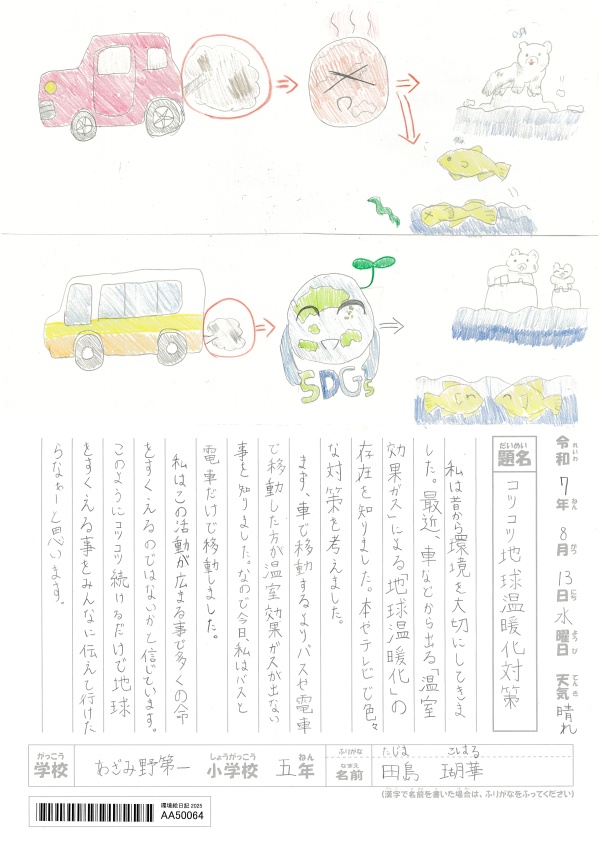 SDGs
令和7年8月13日水曜日 天気晴れ
れいわ ねん がつ にち ようび てんき
だいめい
題名 コツコツ地球温暖化対策
私は昔から環境を大切にしてきま
した。最近、車などから出る「温室
効果ガス」による「地球温暖化」の
存在を知りました。本やテレビで色々
な対策を考えました。
まず、車で移動するよりバスや電車
で移動した方が温室効果ガスが出ない
事を知りました。なので今日、私はバスと
電車だけで移動しました。
私はこの活動が広まる事で多くの命
をすくえるのではないかと信じています。
このようにコツコツ続けるだけで地球
をすくえる事をみんなに伝えて行けた
らなぁーと思います。
がっこう しょうがっこう ねん ふりがな たじま こはる
学校 あざみ野第一 小学校 五年 なまえ 名前 田島 瑚華
(漢字で名前を書いた場合は、ふりがなをふってください)
環境絵日記 2025
AA50064